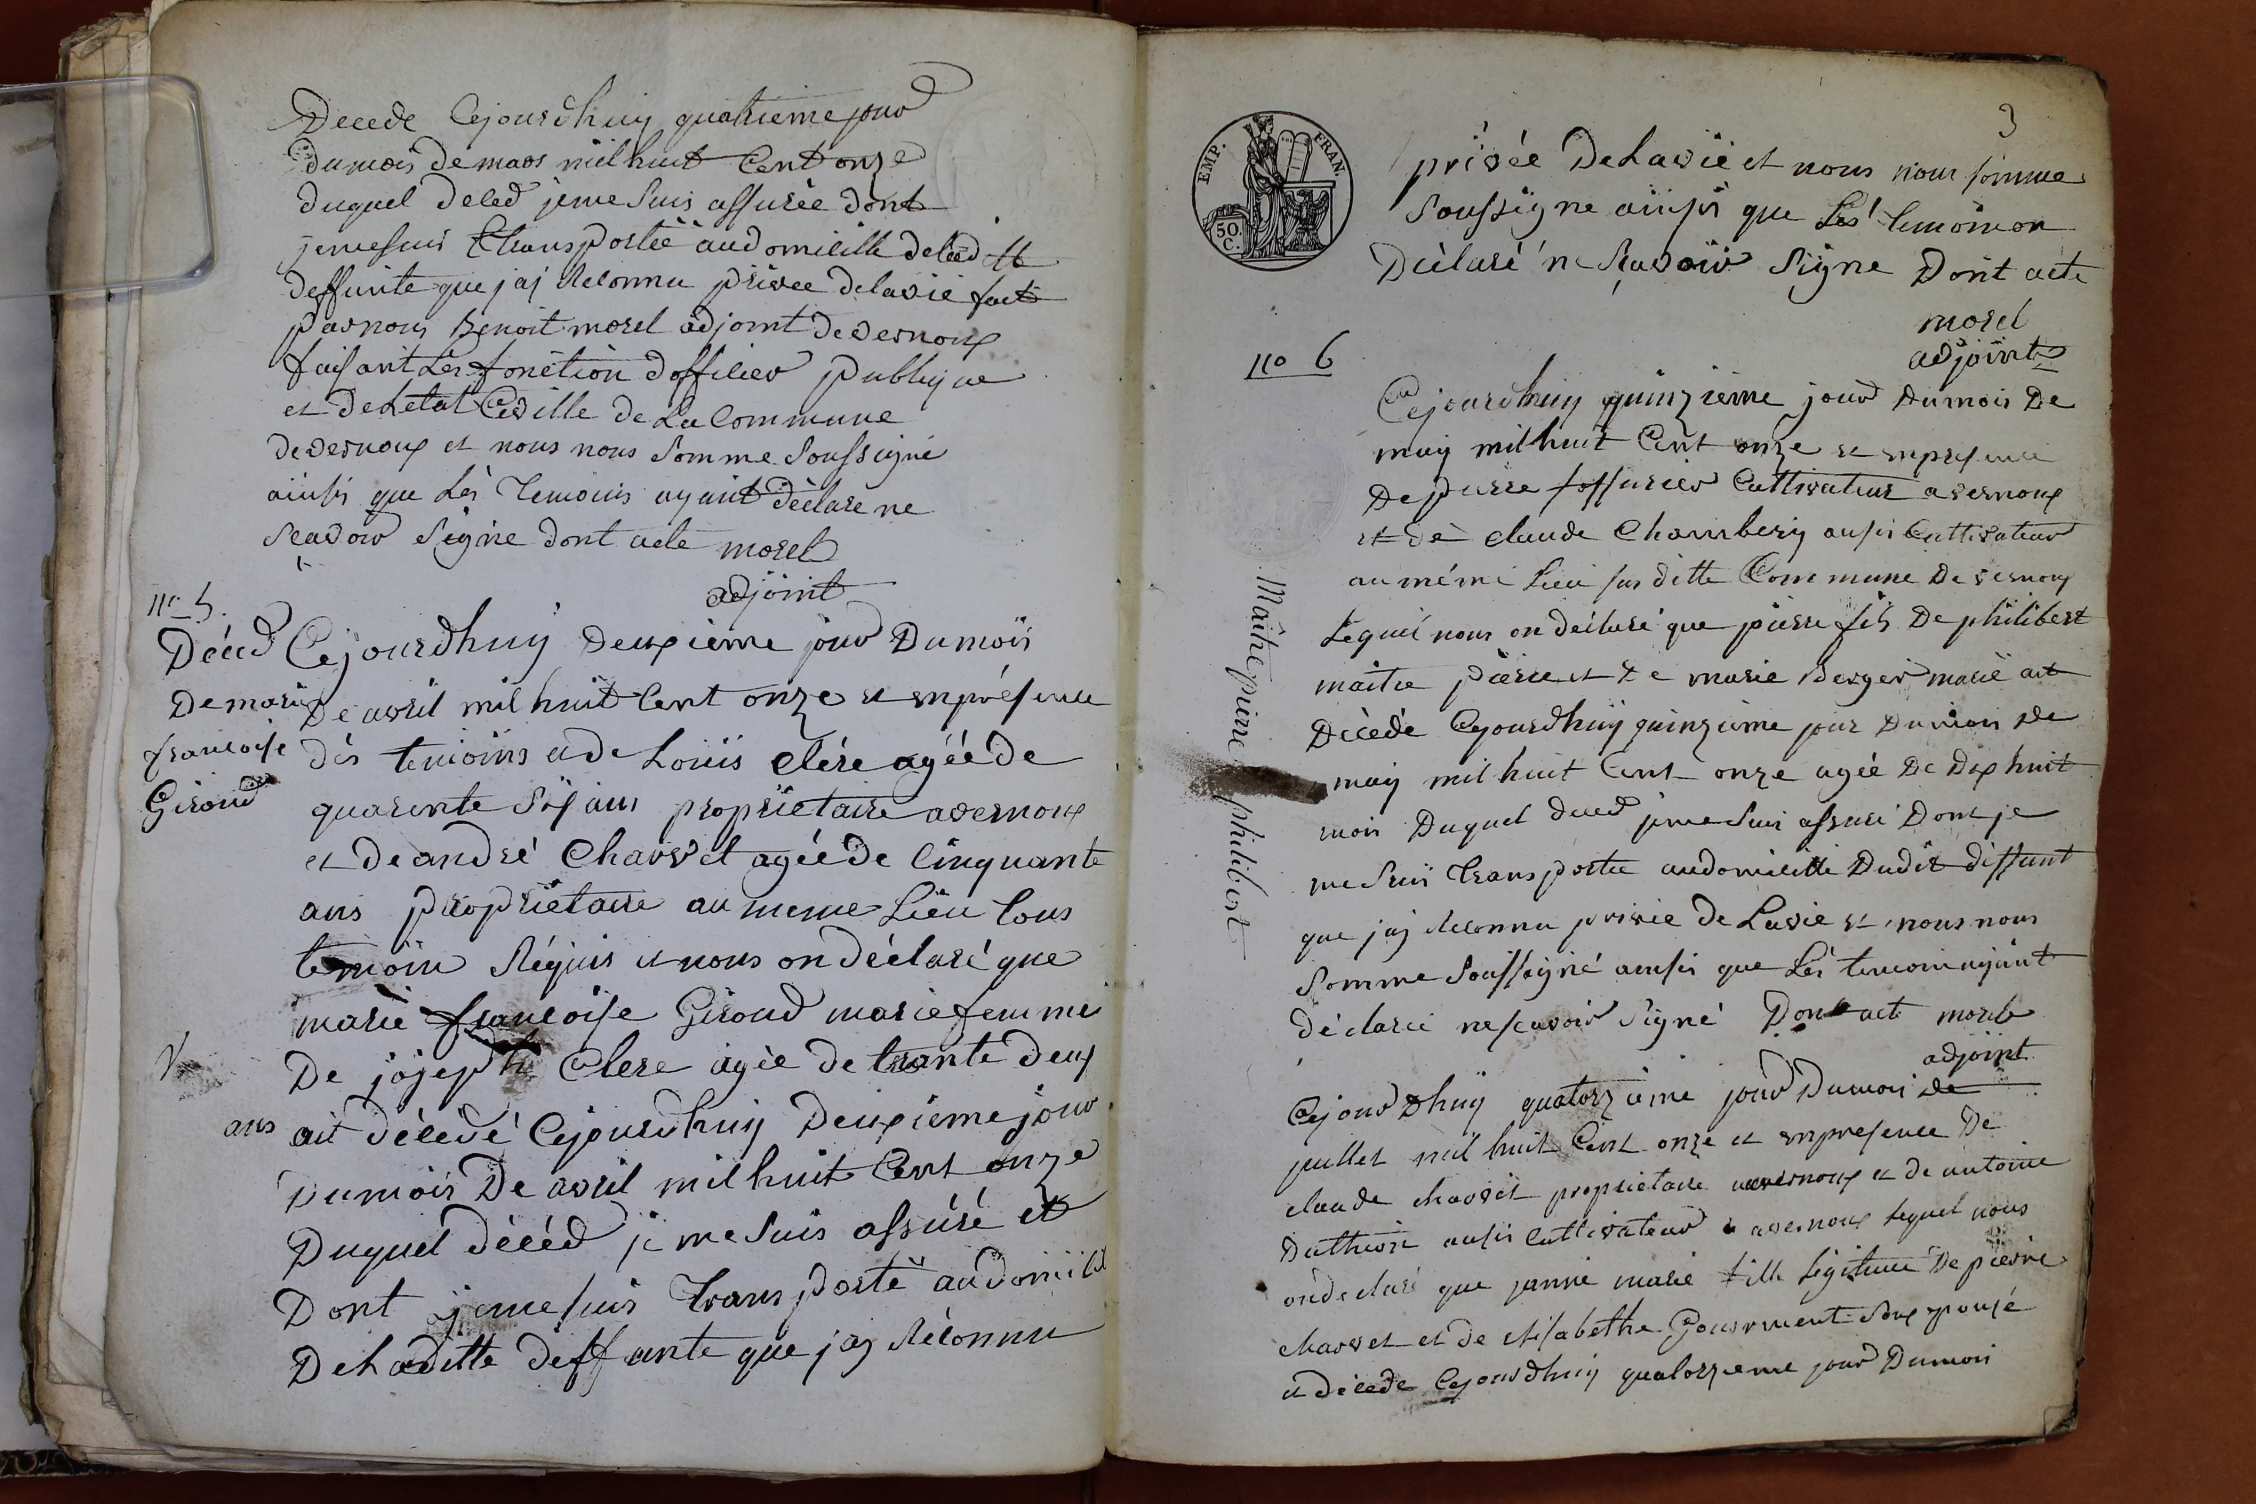 Decede Cejourdhuy quatrieme jour
dumois demars milhuit Cent onze
duquel deced jeme Suis assurée dont
jemesuis transportée audomicille deladitte
deffunte que jaj Reconnu privee delavie fait
parnous Benoit morel adjoint devernoux
faisant Les fonction dofficier publique
et deLetat Civille de La Commune
devernoux et nous nous Somme Soussigné
ainsis que Les Temoins ayant déclare ne
Scavoir Signe dont acte morel
adjoint
no 5.
Déced
Demarie
francoise
Giroud
Cejourdhuy deuxieme jour Dumois
De avril milhuit Cent onze et enprésence
dés temoins ade Louis clére agéé de
quarente Six ans propriétaire avernoux
et deandré Charvet agéé de Cinquante
ans propriétaire au meme Liéu tous
temoin Réquis et nous on déclaré que
marie francoise Giroud marie femme
De jojeph Clere agée de trante deux
ans ait décédé Cejourdhuy Deuxiemejour
Dumois De avril milhuit Cent onze
Duquel décéd je me Suis assuré et
Dont jemesuis transporté audomicil
DeLaditte deffunte que jay Réconnu
3
EMP. FRAN.
50.
C.
privée DeLavie et nous nous somme
Soussigne ainsis que Les temoin on
Déclaré ne Scavoir Signe Dont acte
morel
adjoint
no 6
Maitre pierre philibert
Cejourdhuy quinzieme jour dumois De
may milhuit Cent onze et enpresence
De pierre fossurier Cultivateur avernoux
et dé claude Chambery ausis Cultivateur
au méme Lieu sus ditte Commune De vernoux
Lequel nous on déclaré que pierre fils De philibert
maitre pierre et De marie Berger marié ait
Décédé Cejourdhuy quinzieme jour Dumois De
may mil huit Cent onze agée De Dix huit
mois Duquel deced jeme Suis assuré Dont je
me Suis transportée audomicille Dudit deffunt
que jaj Reconnu privée de Lavie et nous nous
Somme Soussigné ainsis que Les temoin ayant
déclaréé ne scavoir Signé Dont act morel
adjoint
Cejour Dhuy quatorzieme jour Dumois de
juillet mil huit Cent onze et enpresence De
claude charvet propriétaire avernoux et de antoine
Duthion ausis Cultivateur a avernoux Lequel nous
ondeclaré que janne marie fille Légitime De pierre
charvet et de elisabethe Gourment son epousé
et décede Cejourdhuy quatorzieme jour Dumois